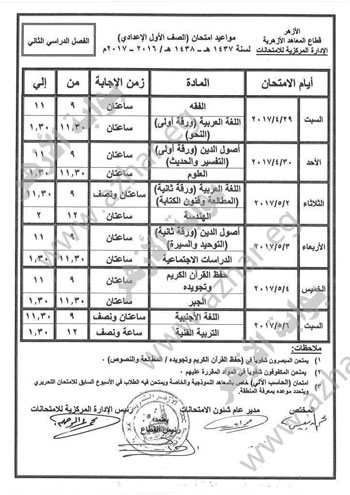 الأزهر
قطاع المعاهد الأزهرية
الإدارة المركزية للامتحانات
مواعيد امتحان (الصف الأول الإعدادي)
لسنة ١٤٣٧ هـ - ١٤٣٨ هـ / ٢٠١٦ - ٢٠١٧م
الفصل الدراسي الثاني
أيام الامتحان المادة زمن الإجابة من إلي
السبت ٢٠١٧/٤/٢٩ الفقه ساعتان ٩ ١١
اللغة العربية (ورقة أولى) (النحو) ساعتان ١١,٣٠ ١,٣٠
الأحد ٢٠١٧/٤/٣٠ أصول الدين (ورقة أولى) (التفسير والحديث) ساعتان ٩ ١١
العلوم ساعتان ١١,٣٠ ١,٣٠
الثلاثاء ٢٠١٧/٥/٢ اللغة العربية (ورقة ثانية) (المطالعة وفنون الكتابة) ساعتان ونصف ٩ ١١,٣٠
الهندسة ساعتان ١٢ ٢
الأربعاء ٢٠١٧/٥/٣ أصول الدين (ورقة ثانية) (التوحيد والسيرة) ساعتان ٩ ١١
الدراسات الاجتماعية ساعتان ١١,٣٠ ١,٣٠
الخميس ٢٠١٧/٥/٤ حفظ القرآن الكريم وتجويده ساعتان ٩ ١١
الجبر ساعتان ١١,٣٠ ١,٣٠
السبت ٢٠١٧/٥/٦ اللغة الأجنبية ساعتان ونصف ٩ ١١,٣٠
التربية الفنية ساعة ونصف ١٢ ١,٣٠
ملاحظات:
١) يمتحن المبصرون شفوياً في (حفظ القرآن الكريم وتجويده / المطالعة والنصوص).
٢) يمتحن المكفوفون شفوياً في المواد المقررة عليهم.
٣) امتحان (الحاسب الآلي) خاص بالمعاهد النموذجية والخاصة ويمتحن فيه الطلاب في الأسبوع السابق للامتحان التحريري
ويتحدد موعده بمعرفة المنطقة.
المختص
مدير عام شئون الامتحانات
رئيس الإدارة المركزية للامتحانات
يعتمد،
رئيس القطاع
بوابة الأزهر
www.azhar.eg